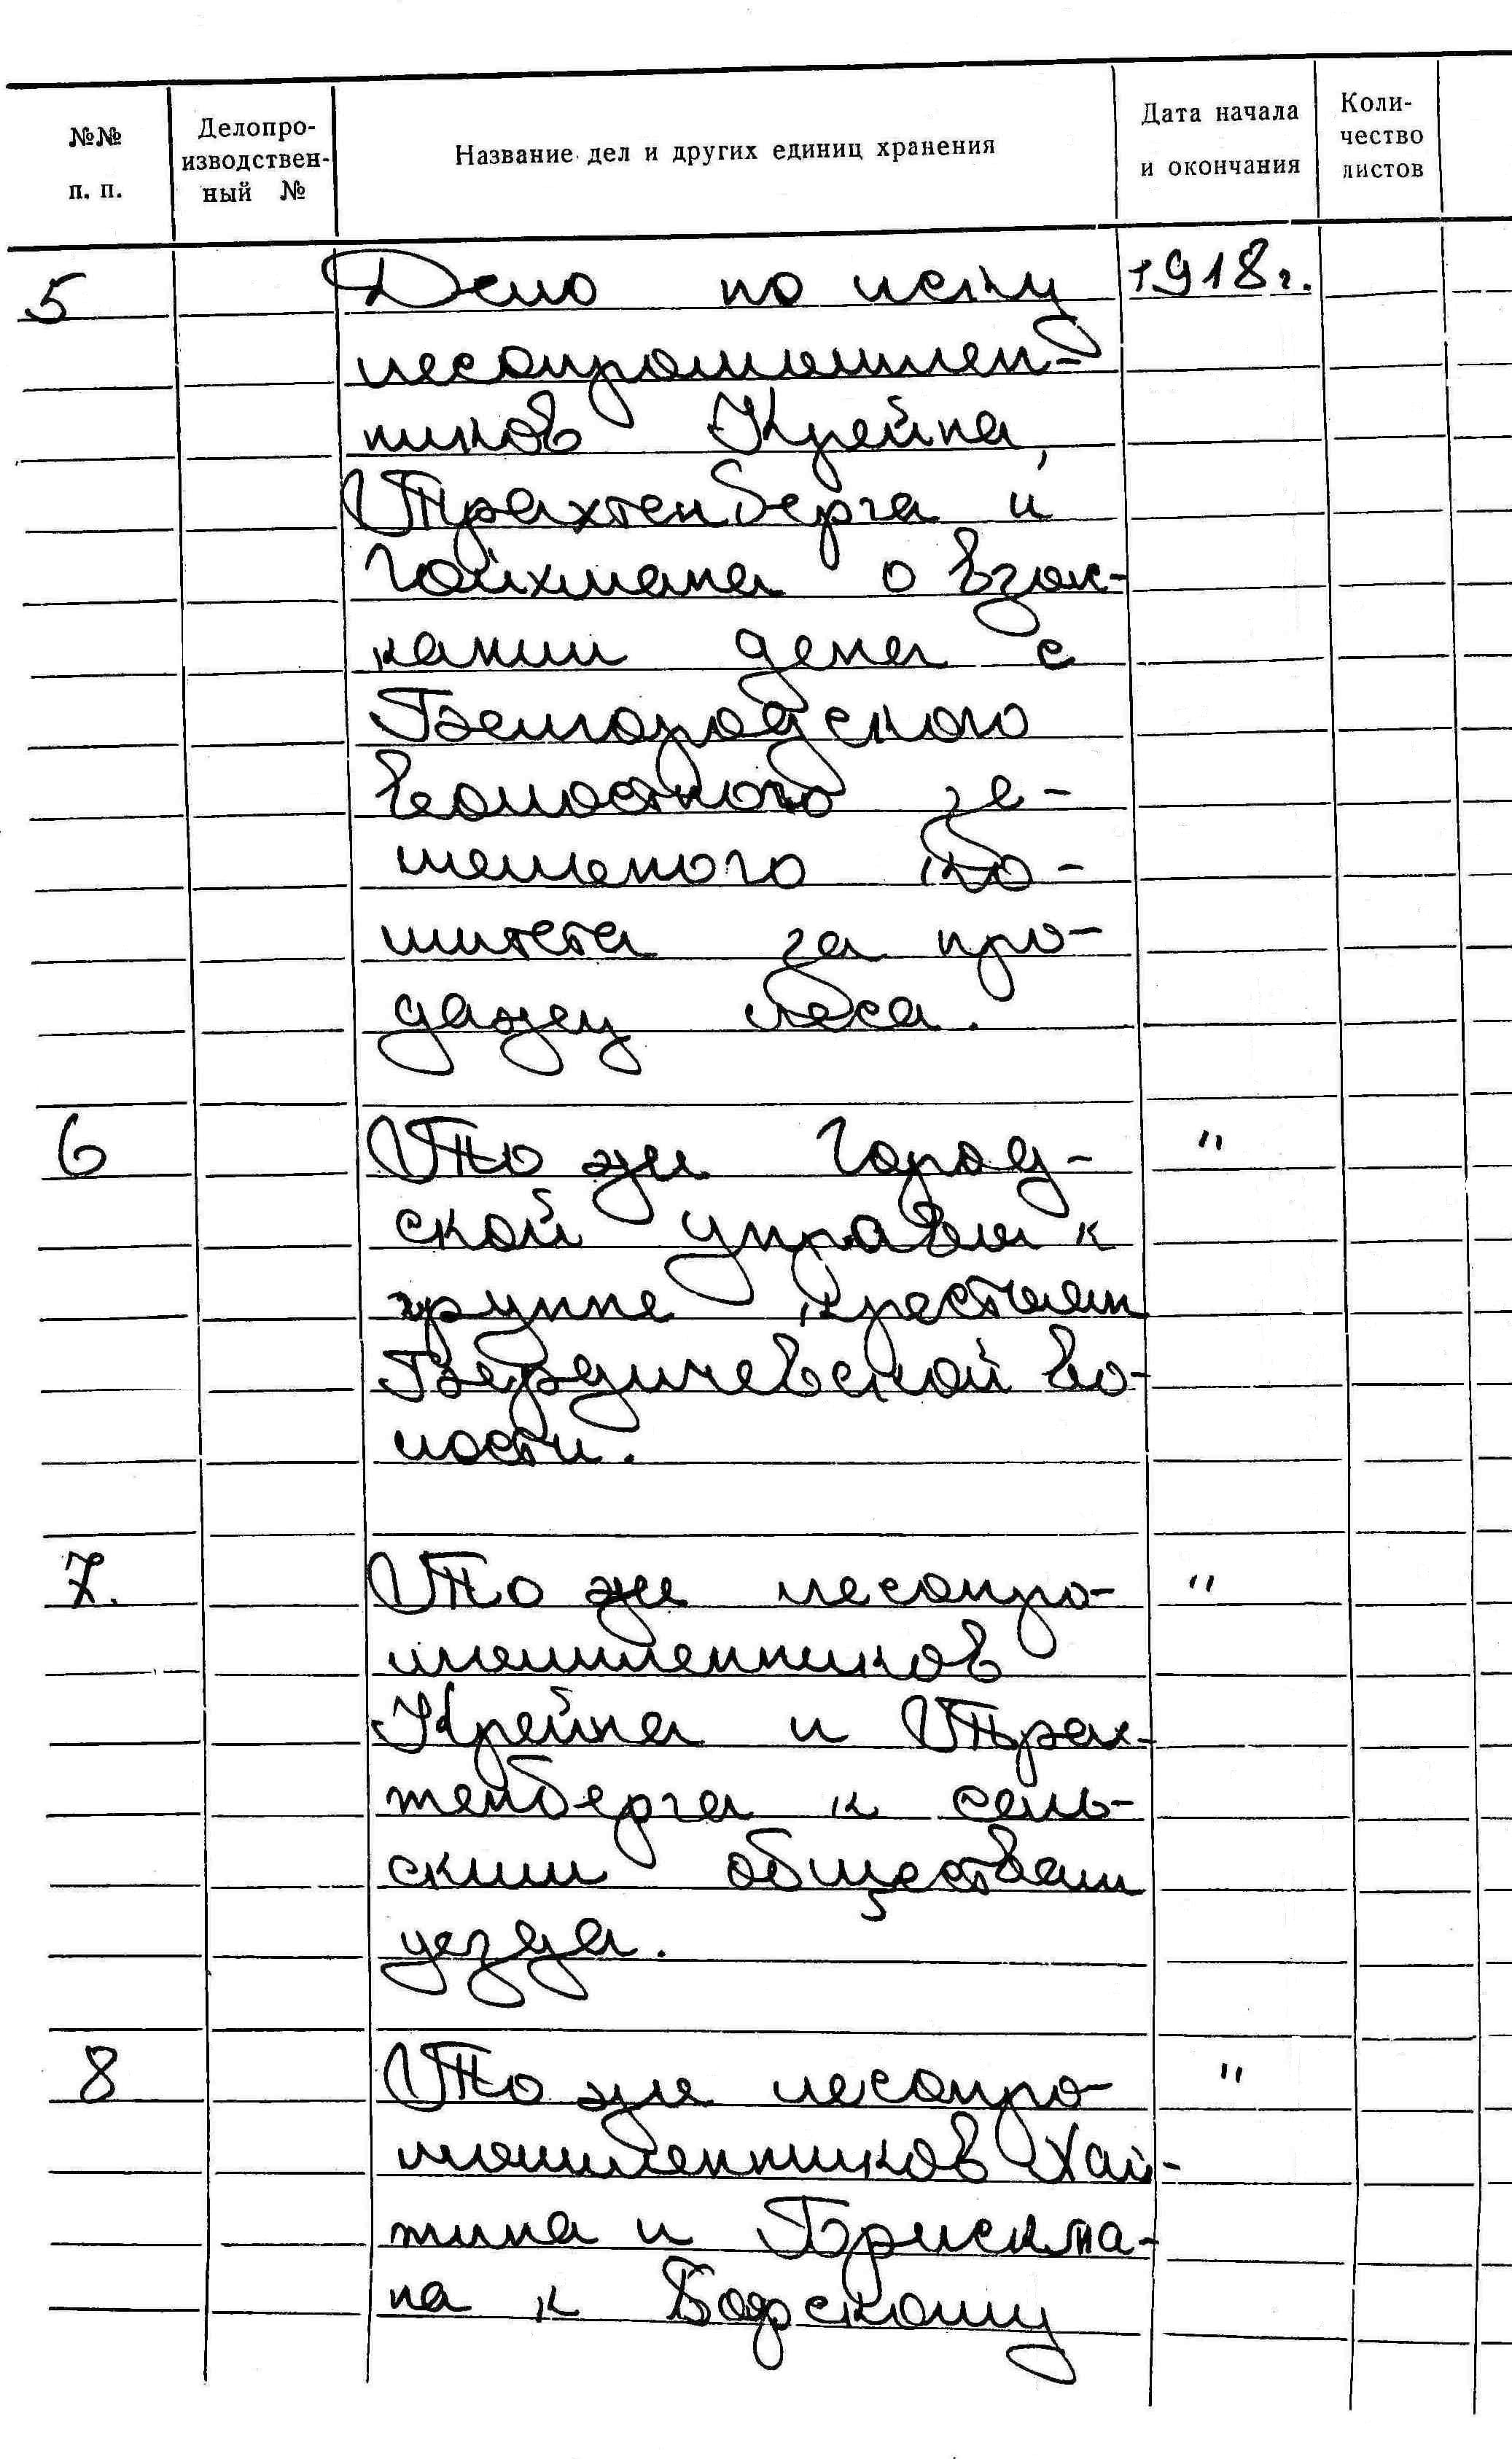 №№ п. п.
Делопро-
изводствен-
ный №
Название дел и других единиц хранения
Дата начала
и окончания
Коли-
чество
листов
5 Дело по иску 1918 г.
лесопромышлен-
ников Крейна,
Трахтенберга и
Гойхмана о взыс-
кании денег с
Белгородского
волостного зе-
мельного ко-
митета за про-
дажу леса.
6 То же Город- "
ской управы к
группе крестьян
Бердичевской во-
лости.
7. То же лесопро- "
мышленников
Крейна и Трах-
тенберга к сель-
ским обществам
уезда.
8 То же лесопро- "
мышленников Хай-
тина и Брискма-
на к Боярскому